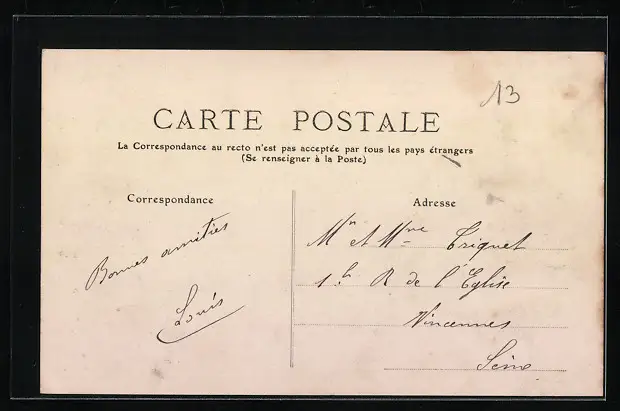 13
CARTE POSTALE
La Correspondance au recto n'est pas acceptée par tous les pays étrangers
(Se renseigner à la Poste)
Correspondance
Bonnes amitiés
Louis
Adresse
Mr et Mme Triquet
R. de l'Eglise
Vincennes
Seine